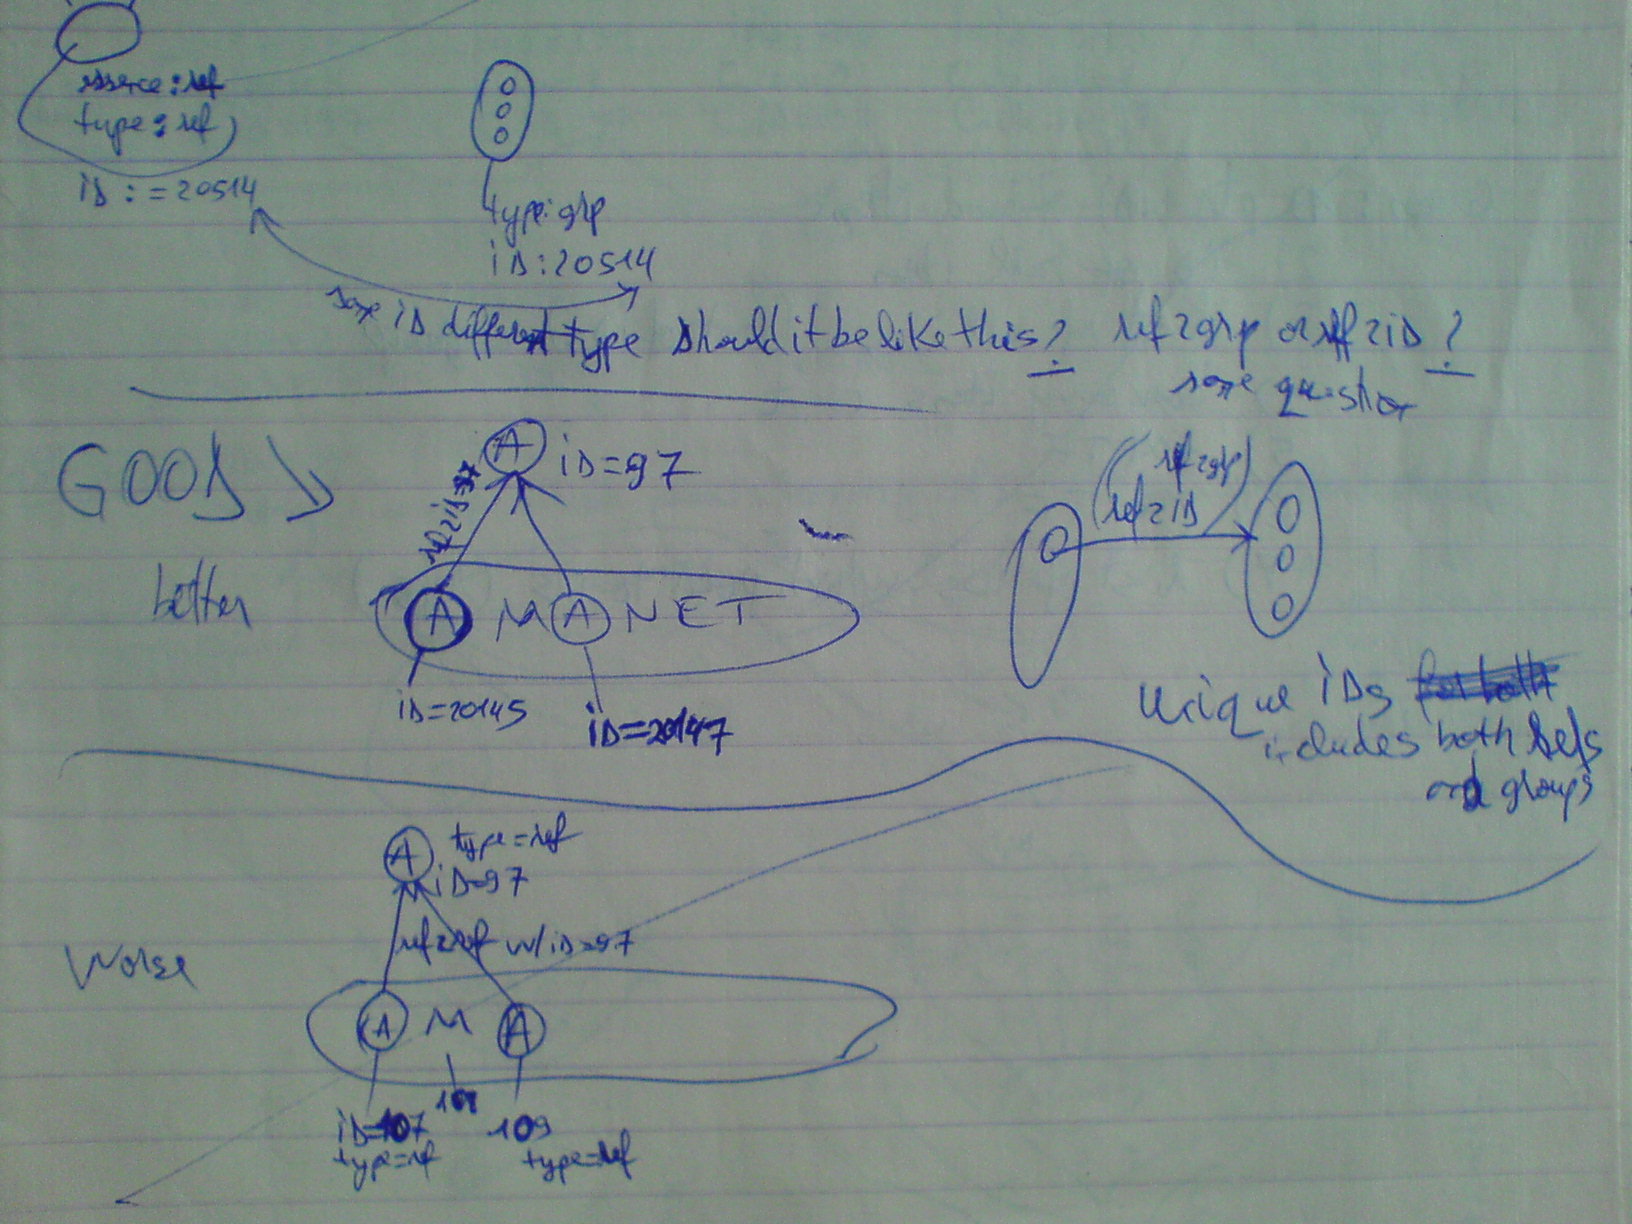 type:ref
iD:=20514
type:grp
iD:20514
same iD different type should it be like this? ref2grp or ref2iD?
same question
GOOD
better
A iD=97
ref2iD=97
A M A NET
iD=20145
iD=20147
(ref2grp
ref2iD)
Unique iDs
includes both refs
and groups
Worse
A type=ref
iD=97
ref2ref w/iD=97
A M A
iD=107
type=ref
108
109
type=ref